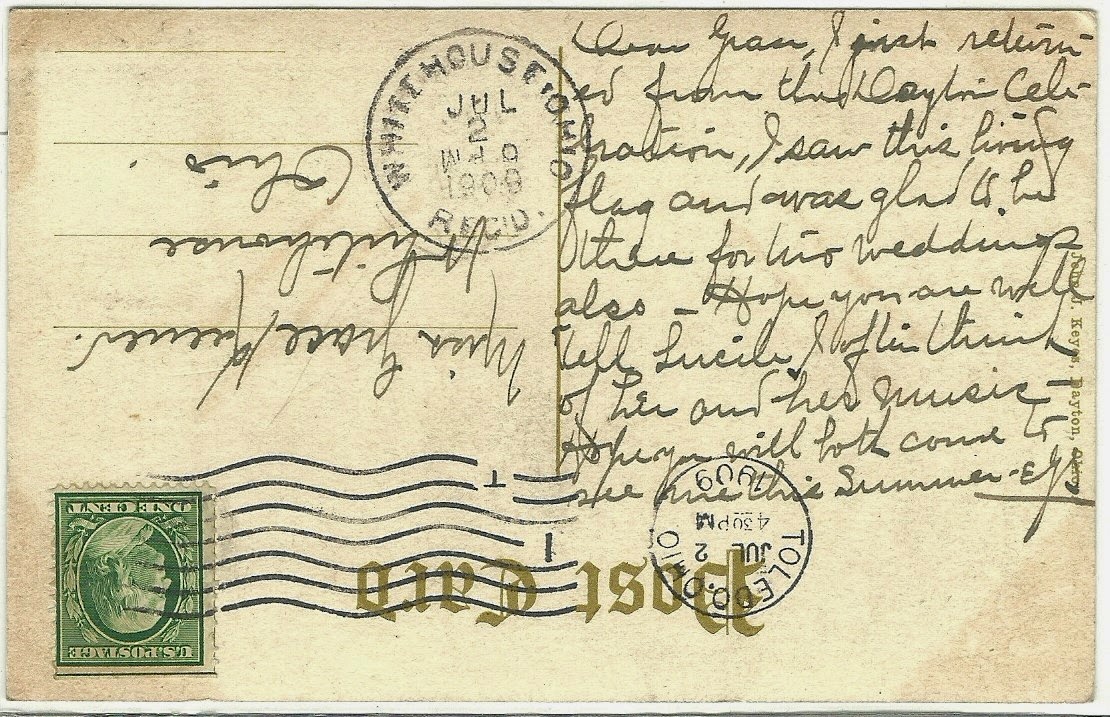 Dear Grace, I just return-
ed from the Dayton Cele-
bration, I saw this living
flag and was glad to be
there for two weddings
also - Hope you are well
tell Lucile I often think
of her and her music -
Hope you will both come to
see me this Summer -
WHITEHOUSE, OHIO
JUL
2
1909
REC'D.
Miss Grace
Whitehouse
Ohio
Dayton, Ohio
TOLEDO, OHIO
JUL 2
430 PM
1909
Post Card
U.S. POSTAGE
ONE CENT